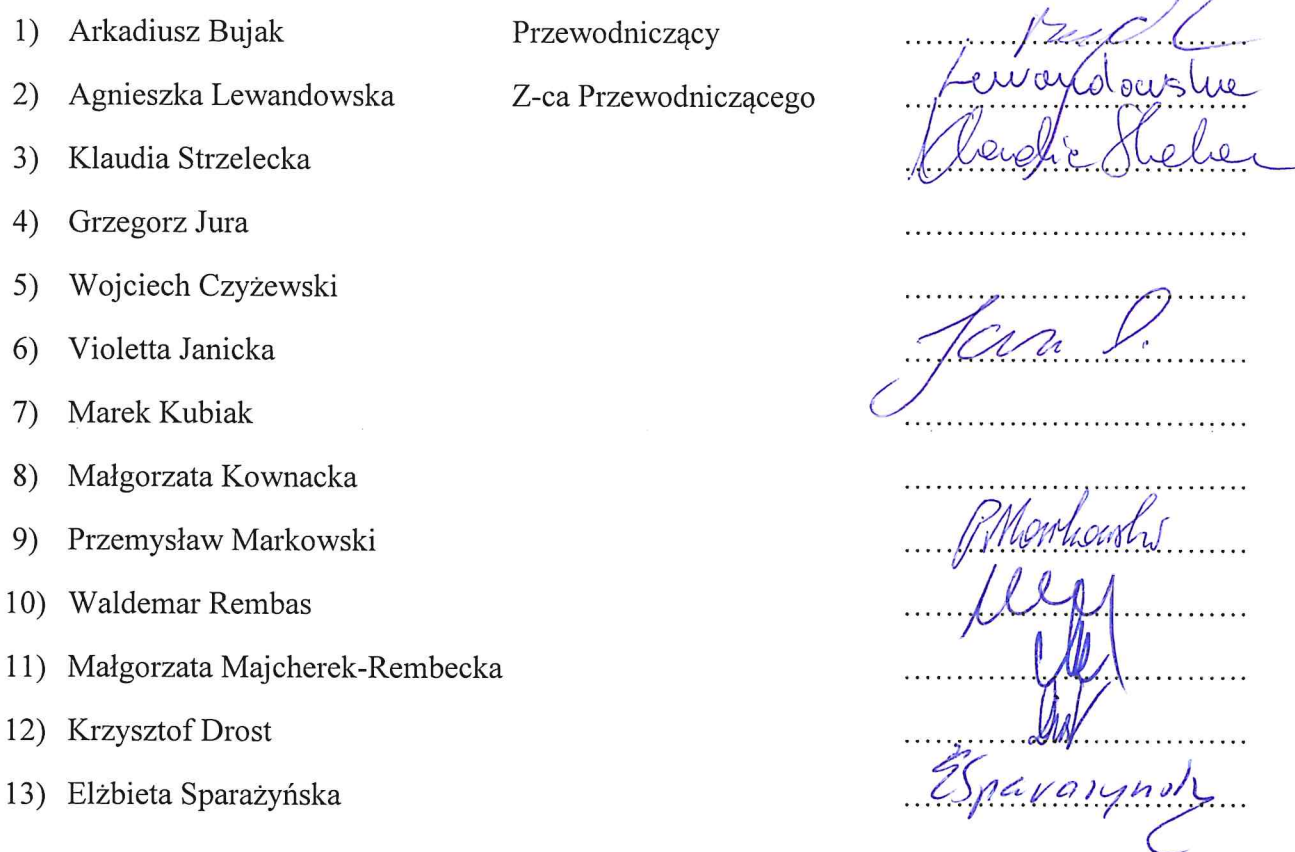 1) Arkadiusz Bujak Przewodniczący
2) Agnieszka Lewandowska Z-ca Przewodniczącego Lewandowska
3) Klaudia Strzelecka Klaudia
4) Grzegorz Jura
5) Wojciech Czyżewski
6) Violetta Janicka
7) Marek Kubiak
8) Małgorzata Kownacka
9) Przemysław Markowski P. Markowski
10) Waldemar Rembas
11) Małgorzata Majcherek-Rembecka
12) Krzysztof Drost
13) Elżbieta Sparażyńska